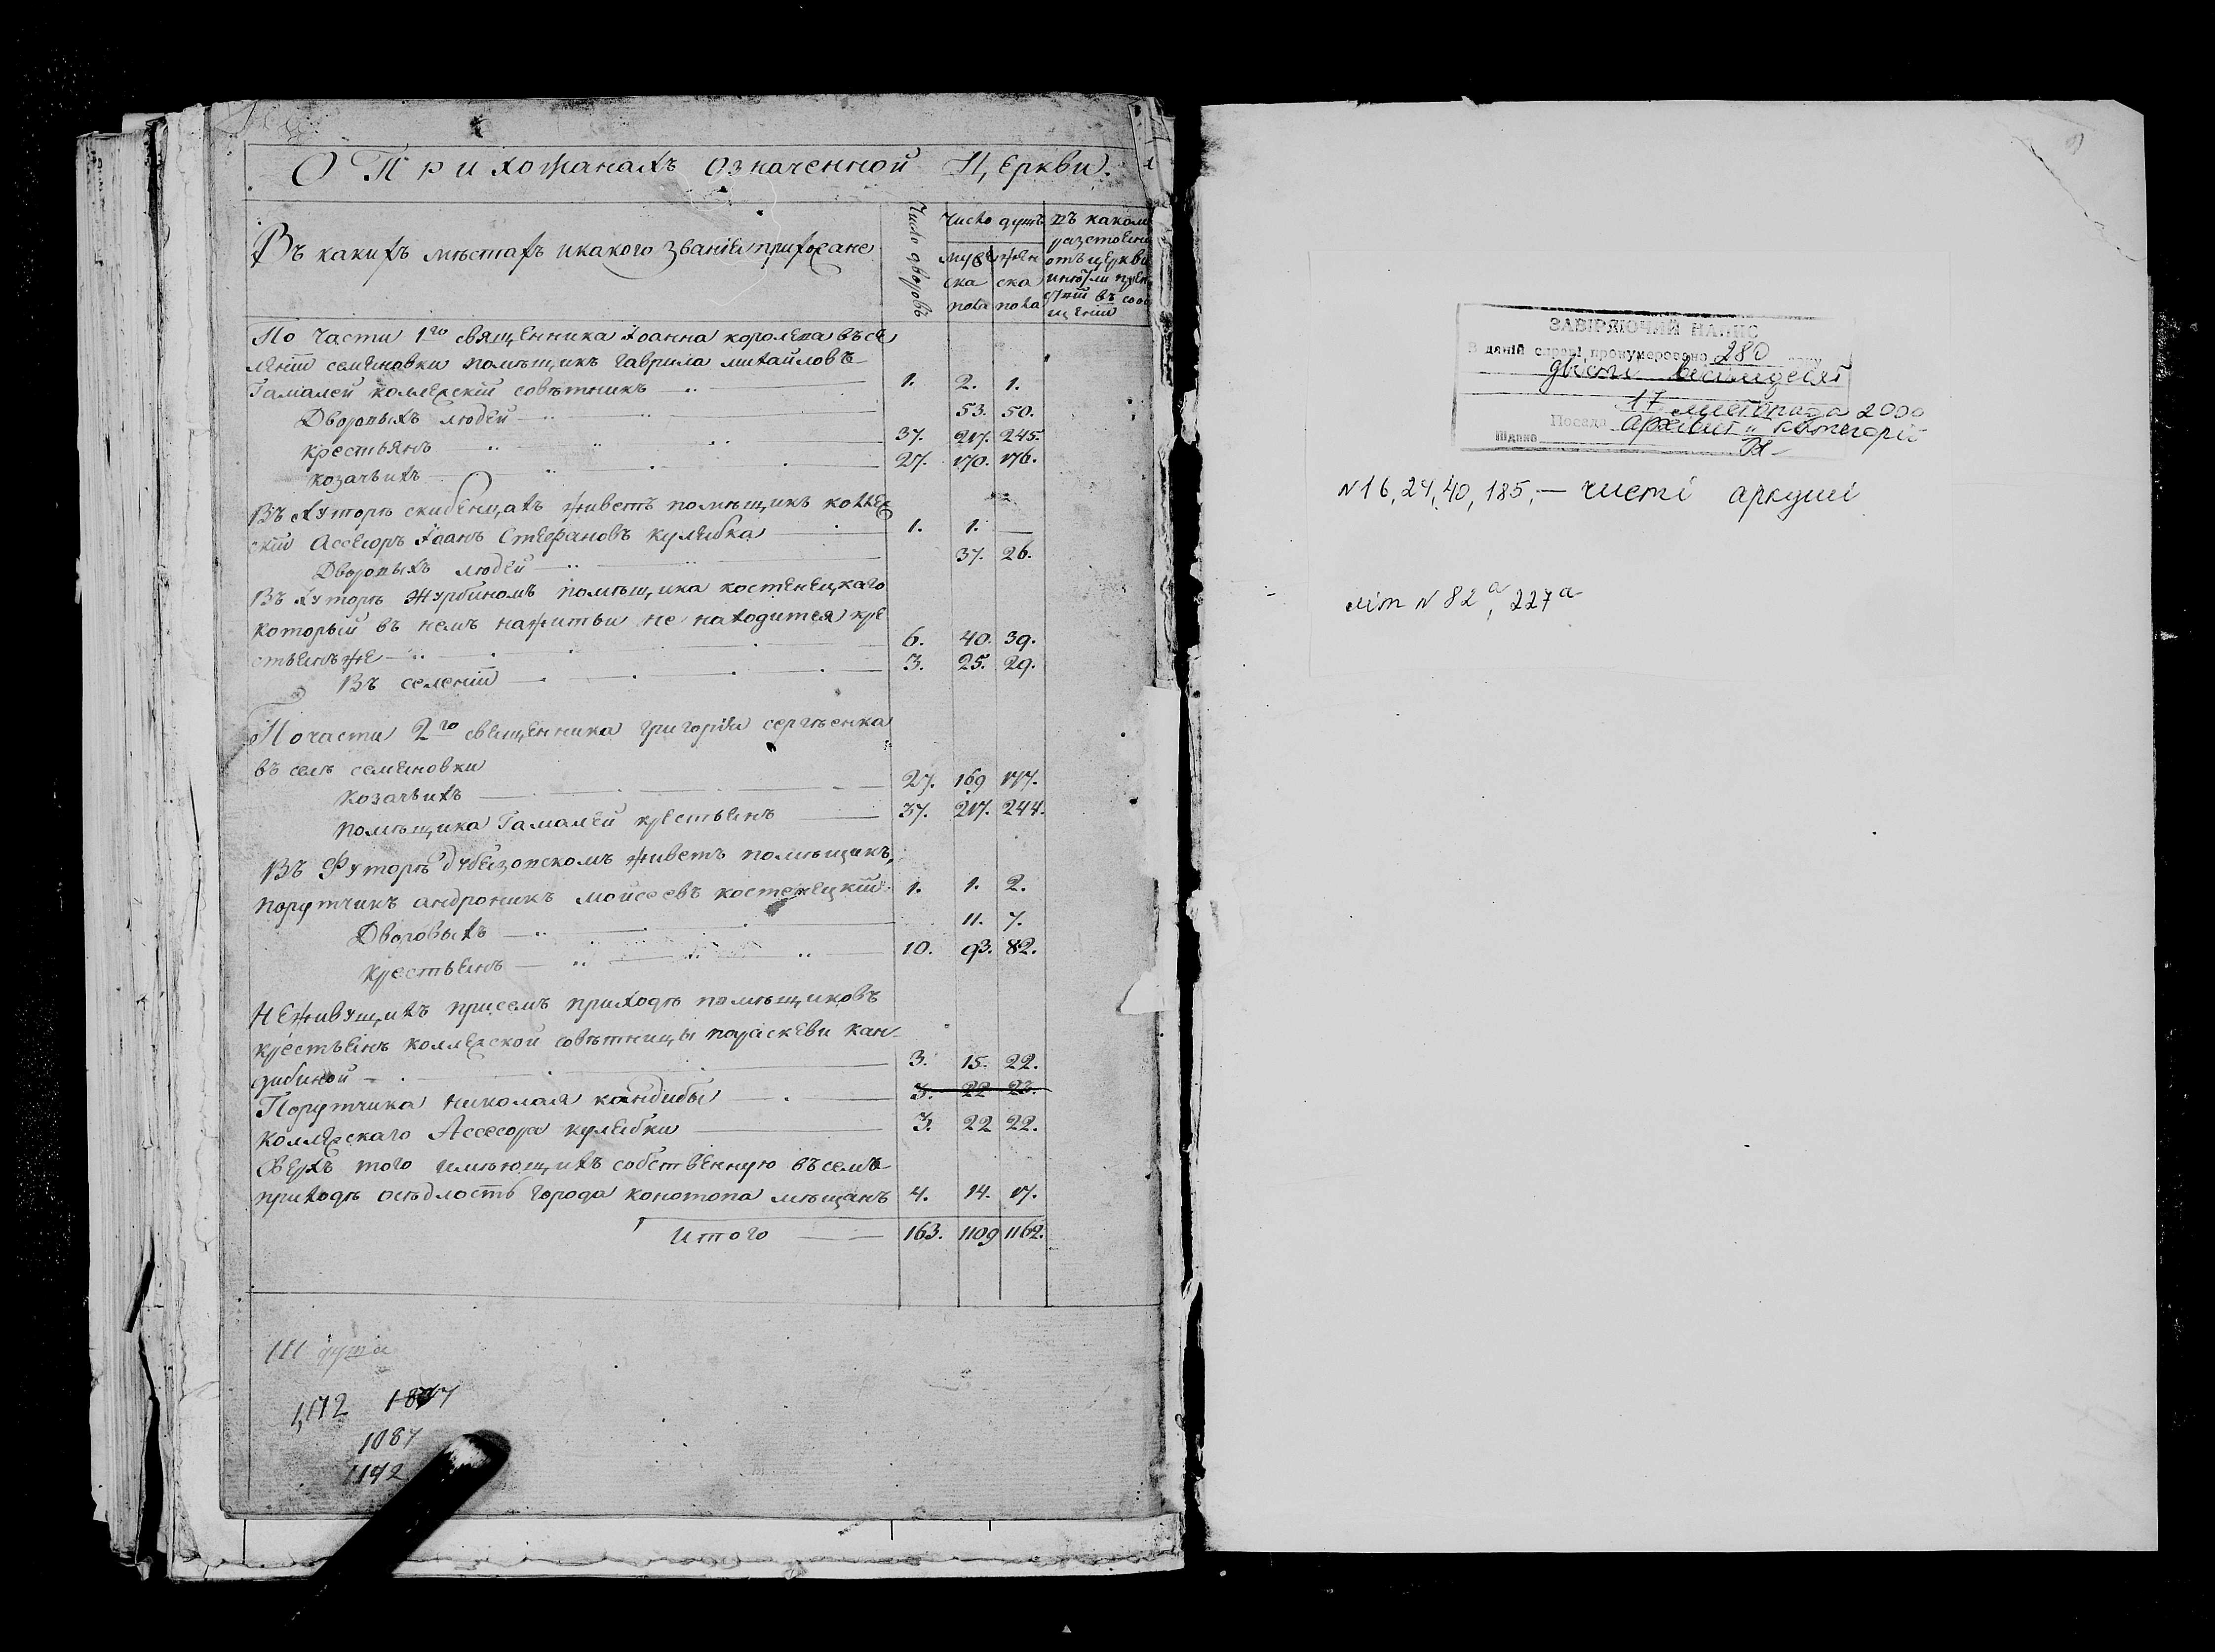 О Прихожанахъ означенной Церкви.
Въ какихъ мѣстахъ икакого званія прихожане
Число дворовъ
Число душъ
мужеска пола
женска пола
Въ какомъ
разстояни
отъ церкви
инѣтли препя
ствій въ сооб
щеніи
По части 1го священника Іоанна королева въсе
леніи семяновки помѣщикъ гаврила михайловъ
Гамалей коллежскій совѣтникъ 1. 2. 1.
Дворовыхъ людей 53. 50.
крестьянъ 37. 217. 245.
козачьихъ 27. 170. 176.
Въ Хуторѣ скибенцахъ живетъ помѣщикъ коллеж
скій Ассесоръ Іоанъ Стефановъ кулябка 1. 1. —
Дворовыхъ людей 37. 26.
Въ Хуторѣ Журбиномъ помѣщика костенецкаго
который въ немъ нажитьи не находится кре
стьянъже 6. 40. 39.
Въ селеніи 3. 25. 29.
Почасти 2го священника григорія сергѣенка
въ селѣ семяновки
Козачьихъ 27. 169 177.
помѣщика Гамалеи крестьянъ 37. 217. 244.
Въ Футорѣ живетъ помѣщикъ,
порутчикъ андроникъ мойсеевъ костенецкій 1. 1. 2.
Дворовыхъ 11. 7.
крестьянъ 10. 93. 82.
Неживущихъ присемъ приходѣ помѣщиковъ
крестьянъ коллежской совѣтницы параскеви кан-
дибиной 3. 15. 22.
Порутчика николая кандибы 3. 22 23.
коллежскаго Ассесора кулябки 3. 22 22.
Сверхъ того имѣющихъ собственную въсемъ
приходѣ осѣдлость города конотопа мѣщанъ 4. 14. 17.
Итого 163. 1109 1162.
111 душа
1,172
1087
1172
ЗАВІРЯЮЧИЙ НАПИС
В даній справі пронумеровано 280
двісті вісімдесят
17 листопада 2000
Посада архівіст II категорії
Підпис
N 16, 24, 40, 185, — чисті аркуші
літ N 82а, 227а